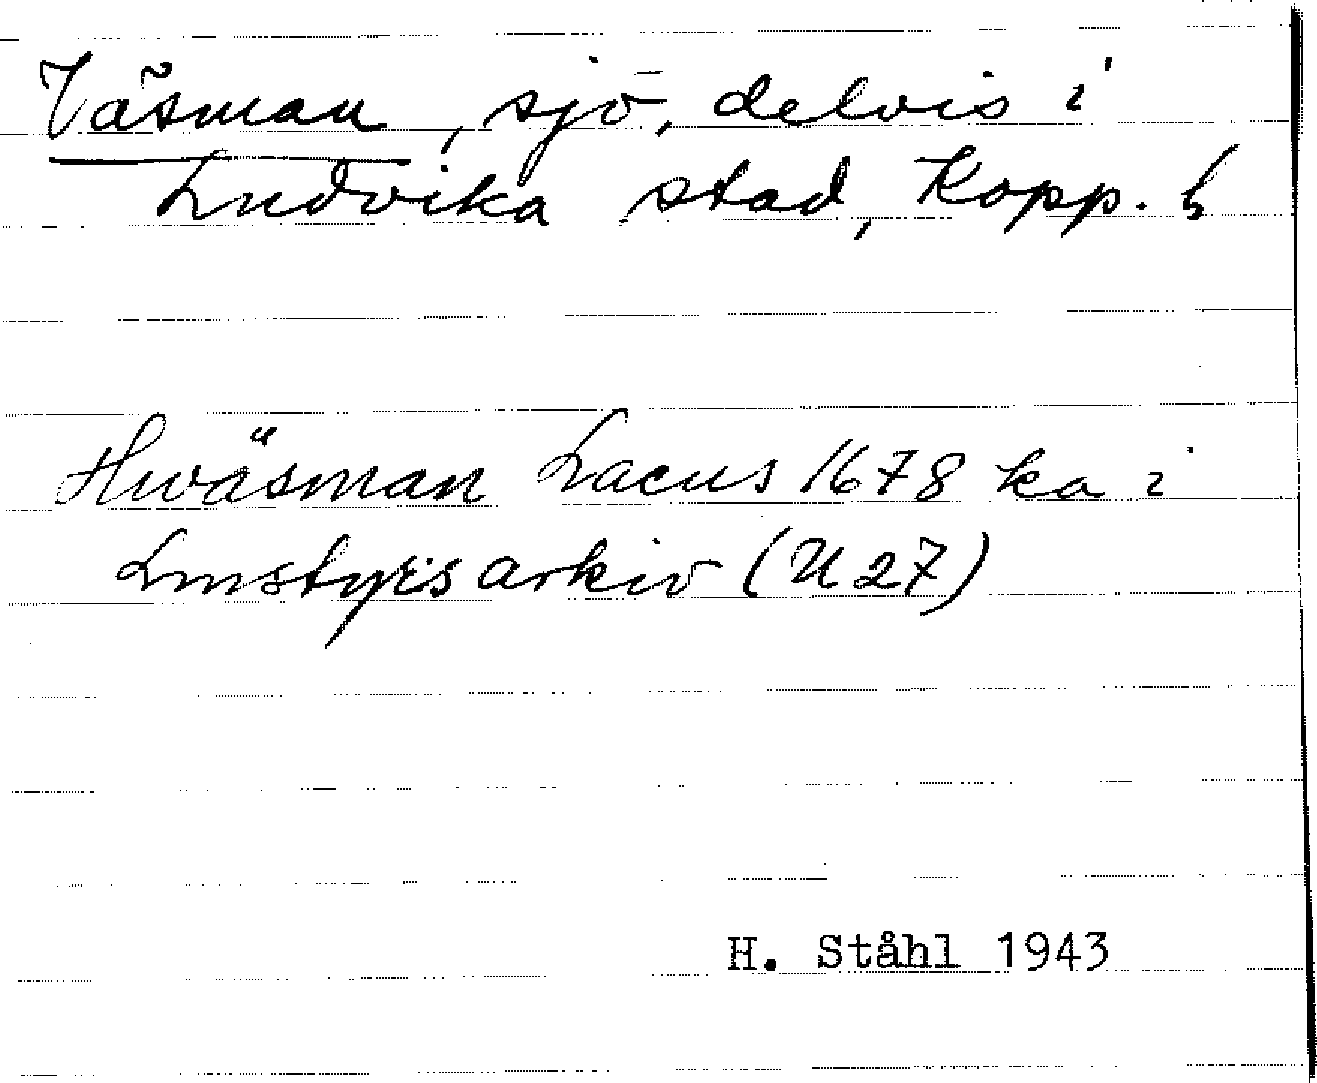 Väsman, sjö, delvis i
Ludvika stad, Kopp. l
Hwäsman Lacus 1678 ka i
Lmstyr:s arkiv (U 27)
H. Ståhl 1943